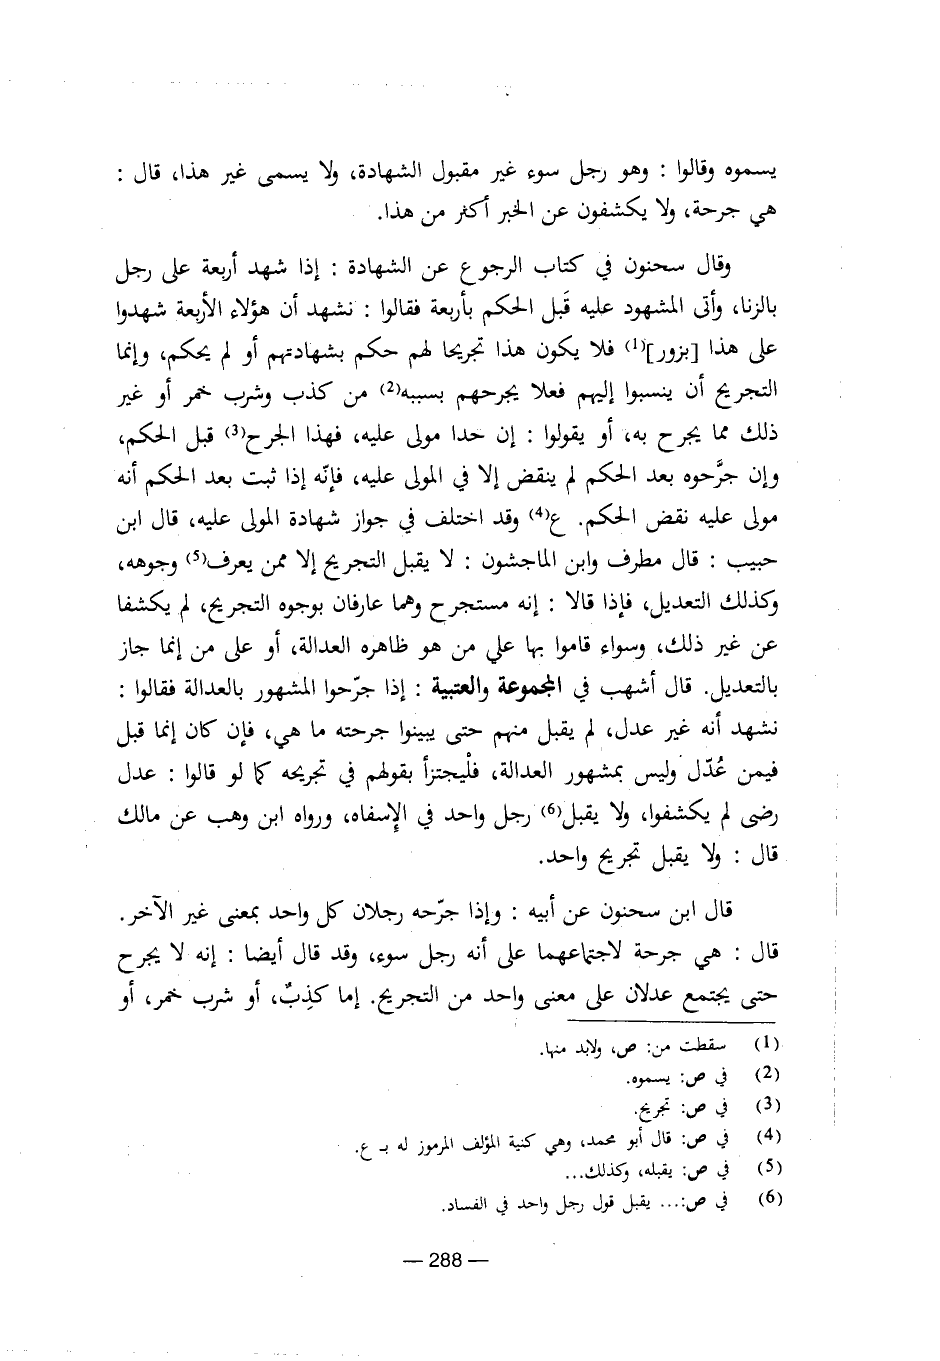 يسموه وقالوا : وهو رجل سوء غير مقبول الشهادة، ولا يسمى غير هذا، قال :
هي جرحة، ولا يكشفون عن الخبر أكثر من هذا.
وقال سحنون في كتاب الرجوع عن الشهادة : إذا شهد أربعة على رجل
بالزنا، وأتى المشهود عليه قَبل الحكم بأربعة فقالوا : نشهد أن هؤلاء الأربعة شهدوا
على هذا [بزور](1) فلا يكون هذا تجريحا لهم حكم بشهادتهم أو لم يحكم، وإنما
التجريح أن ينسبوا إليهم فعلا يجرحهم بسببه(2) من كذب وشرب خمر أو غير
ذلك مما يجرح به، أو يقولوا : إن حدا مولى عليه، فهذا الجرح(3) قبل الحكم،
وإن جرَّحوه بعد الحكم لم ينقض إلا في المولى عليه، فإنّه إذا ثبت بعد الحكم أنه
مولى عليه نقض الحكم. ع(4) وقد اختلف في جواز شهادة المولى عليه، قال ابن
حبيب : قال مطرف وابن الماجشون : لا يقبل التجريح إلا ممن يعرف(5) وجوهه،
وكذلك التعديل، فإذا قالا : إنه مستجرح وهما عارفان بوجوه التجريح، لم يكشفا
عن غير ذلك، وسواء قاموا بها علي من هو ظاهره العدالة، أو على من إنما جاز
بالتعديل. قال أشهب في المجموعة والعتبية : إذا جرّحوا المشهور بالعدالة فقالوا :
نشهد أنه غير عدل، لم يقبل منهم حتى يبينوا جرحته ما هي، فإن كان إنما قبل
فيمن عُدّل وليس بمشهور العدالة، فلْيجتزأ بقولهم في تجريحه كما لو قالوا : عدل
رضى لم يكشفوا، ولا يقبل(6) رجل واحد في الإسفاه، ورواه ابن وهب عن مالك
قال : ولا يقبل تجريح واحد.
قال ابن سحنون عن أبيه : وإذا جرّحه رجلان كل واحد بمعنى غير الآخر.
قال : هي جرحة لاجتماعهما على أنه رجل سوء، وقد قال أيضا : إنه لا يجرح
حتى يجتمع عدلان على معنى واحد من التجريح. إما كذِبٌ، أو شرب خمر، أو
(1) سقطت من: ص، ولابد منها.
(2) في ص: يسموه.
(3) في ص: تجريح.
(4) في ص: قال أبو محمد، وهي كنية المؤلف المرموز له بـ ع.
(5) في ص: يقبله، وكذلك...
(6) في ص:... يقبل قول رجل واحد في الفساد.
— 288 —